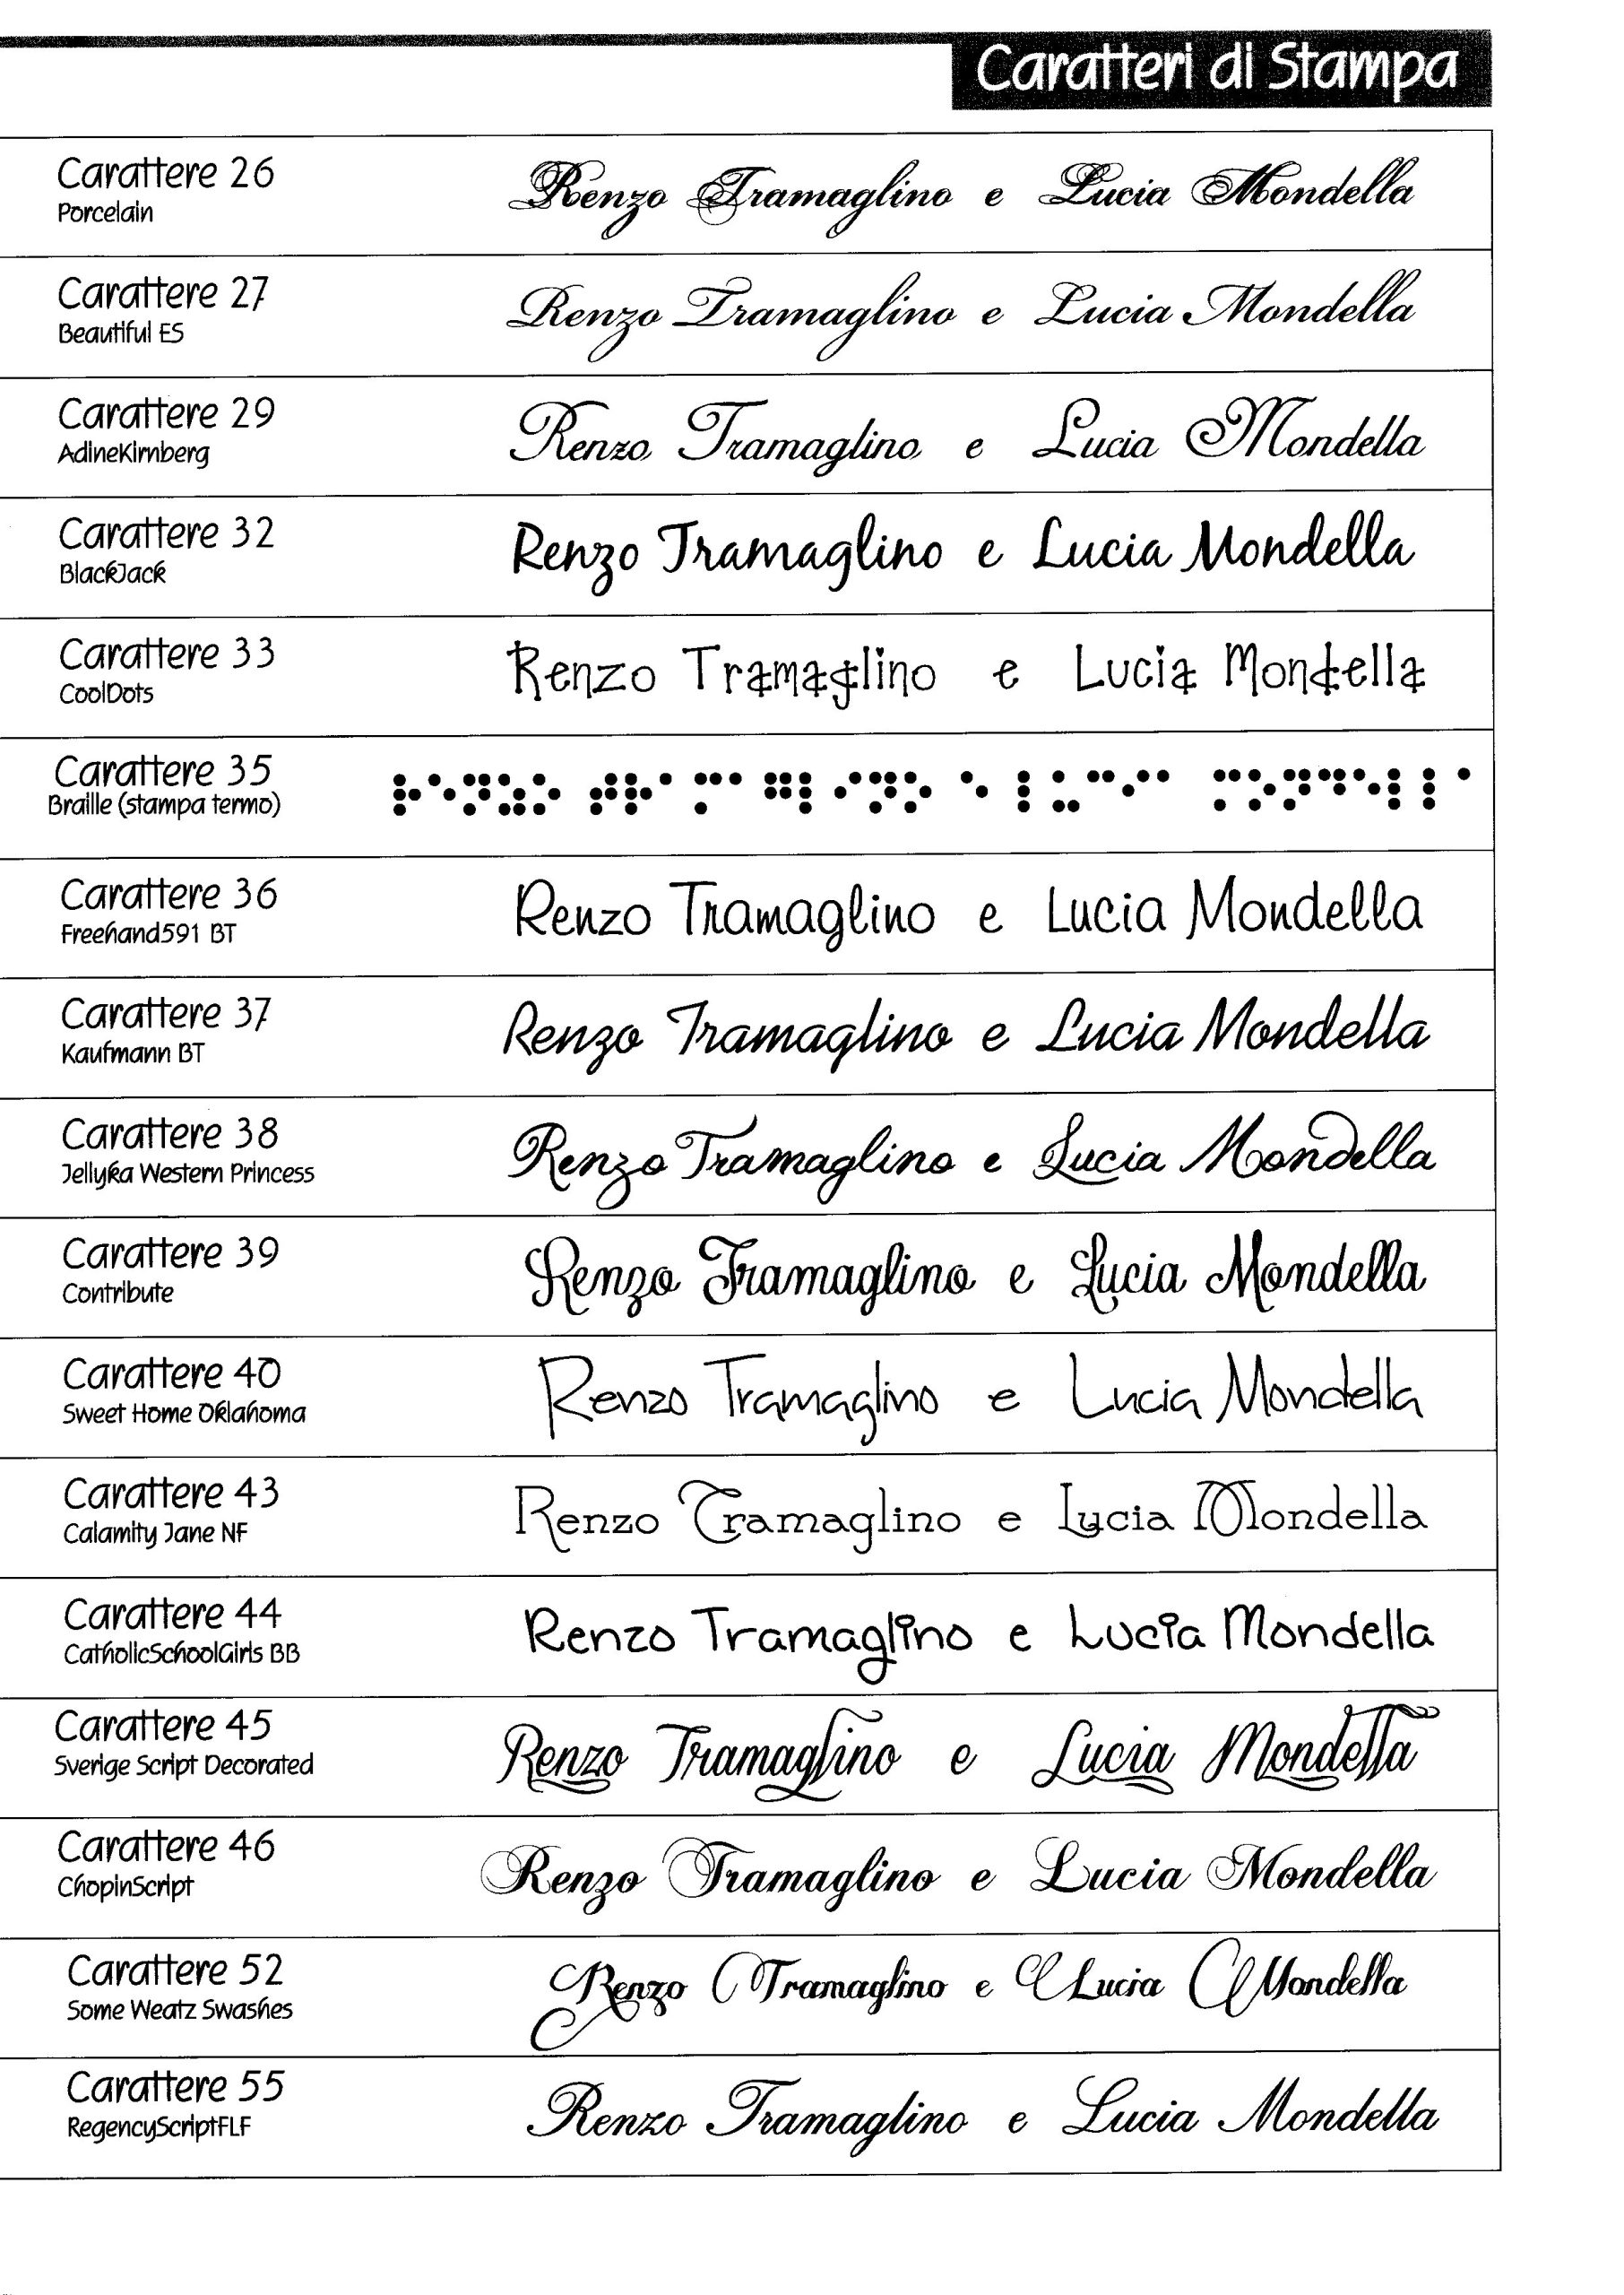 Caratteri di Stampa
Carattere 26
Porcelain
Renzo Tramaglino e Lucia Mondella
Carattere 27
Beautiful ES
Renzo Tramaglino e Lucia Mondella
Carattere 29
AdineKirnberg
Renzo Tramaglino e Lucia Mondella
Carattere 32
BlackJack
Renzo Tramaglino e Lucia Mondella
Carattere 33
CoolDots
Renzo Tramaglino e Lucia Mondella
Carattere 35
Braille (stampa termo)
⠗⠑⠝⠵⠕ ⠞⠗⠁⠍⠁⠛⠇⠊⠝⠕ ⠑ ⠇⠥⠉⠊⠁ ⠍⠕⠝⠙⠑⠇⠇⠁
Carattere 36
Freehand591 BT
Renzo Tramaglino e Lucia Mondella
Carattere 37
Kaufmann BT
Renzo Tramaglino e Lucia Mondella
Carattere 38
Jellyka Western Princess
Renzo Tramaglino e Lucia Mondella
Carattere 39
Contribute
Renzo Tramaglino e Lucia Mondella
Carattere 40
Sweet Home Oklahoma
Renzo Tramaglino e Lucia Mondella
Carattere 43
Calamity Jane NF
Renzo Tramaglino e Lucia Mondella
Carattere 44
CatholicSchoolGirls BB
Renzo Tramaglino e Lucia Mondella
Carattere 45
Sverige Script Decorated
Renzo Tramaglino e Lucia Mondella
Carattere 46
ChopinScript
Renzo Tramaglino e Lucia Mondella
Carattere 52
Some Weatz Swashes
Renzo Tramaglino e Lucia Mondella
Carattere 55
RegencyScriptFLF
Renzo Tramaglino e Lucia Mondella